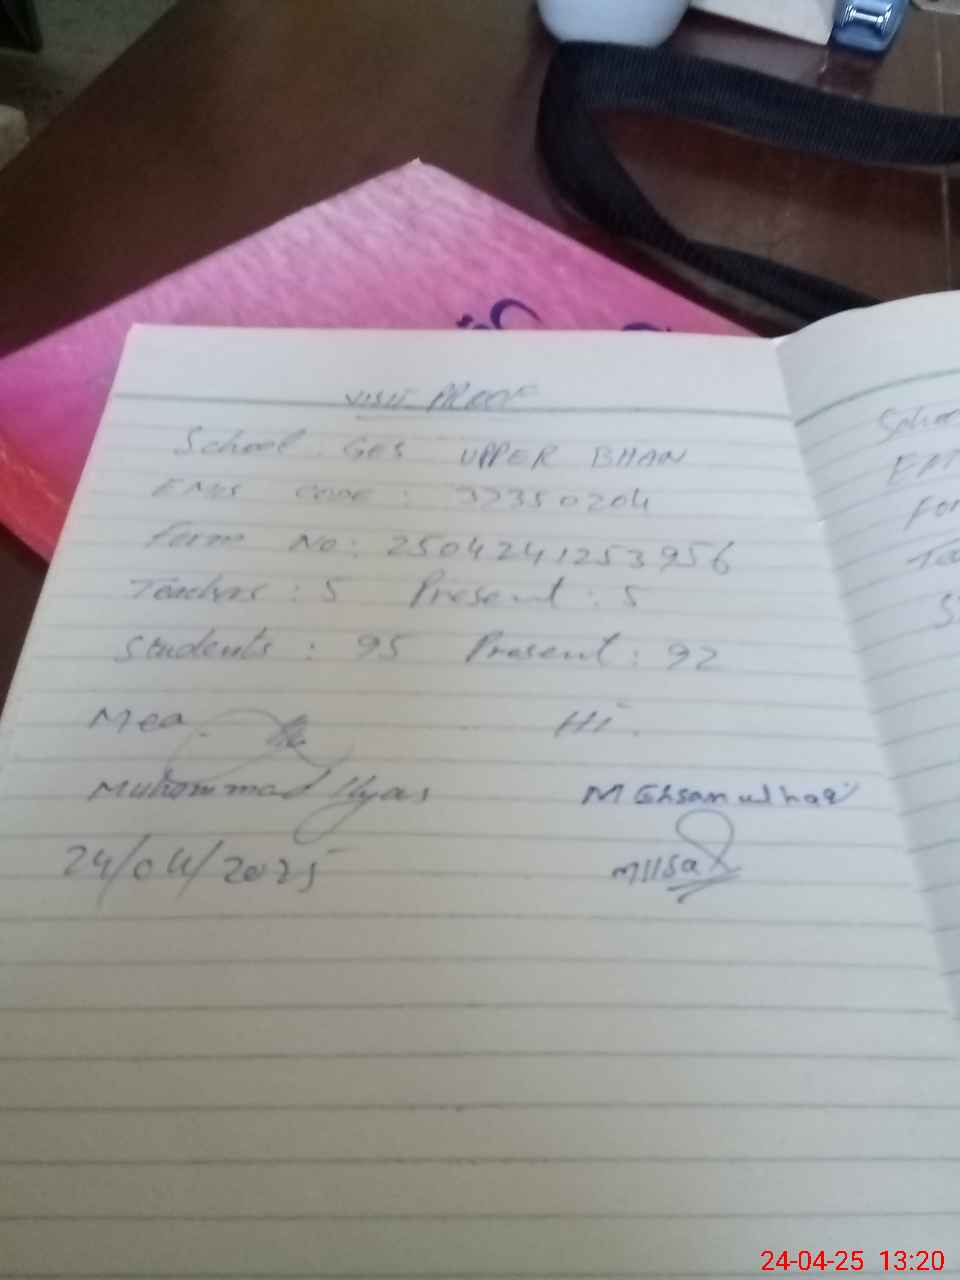 VISIT PROOF
School: GES UPPER BHAN
EMIS CODE: 32350204
Form No: 2504241253956
Teachers: 5 Present: 5
Students: 95 Present: 92
Mea. Ht.
Muhammad Ilyas M Ehsan ul haq
24/04/2025
School
For
24-04-25 13:20